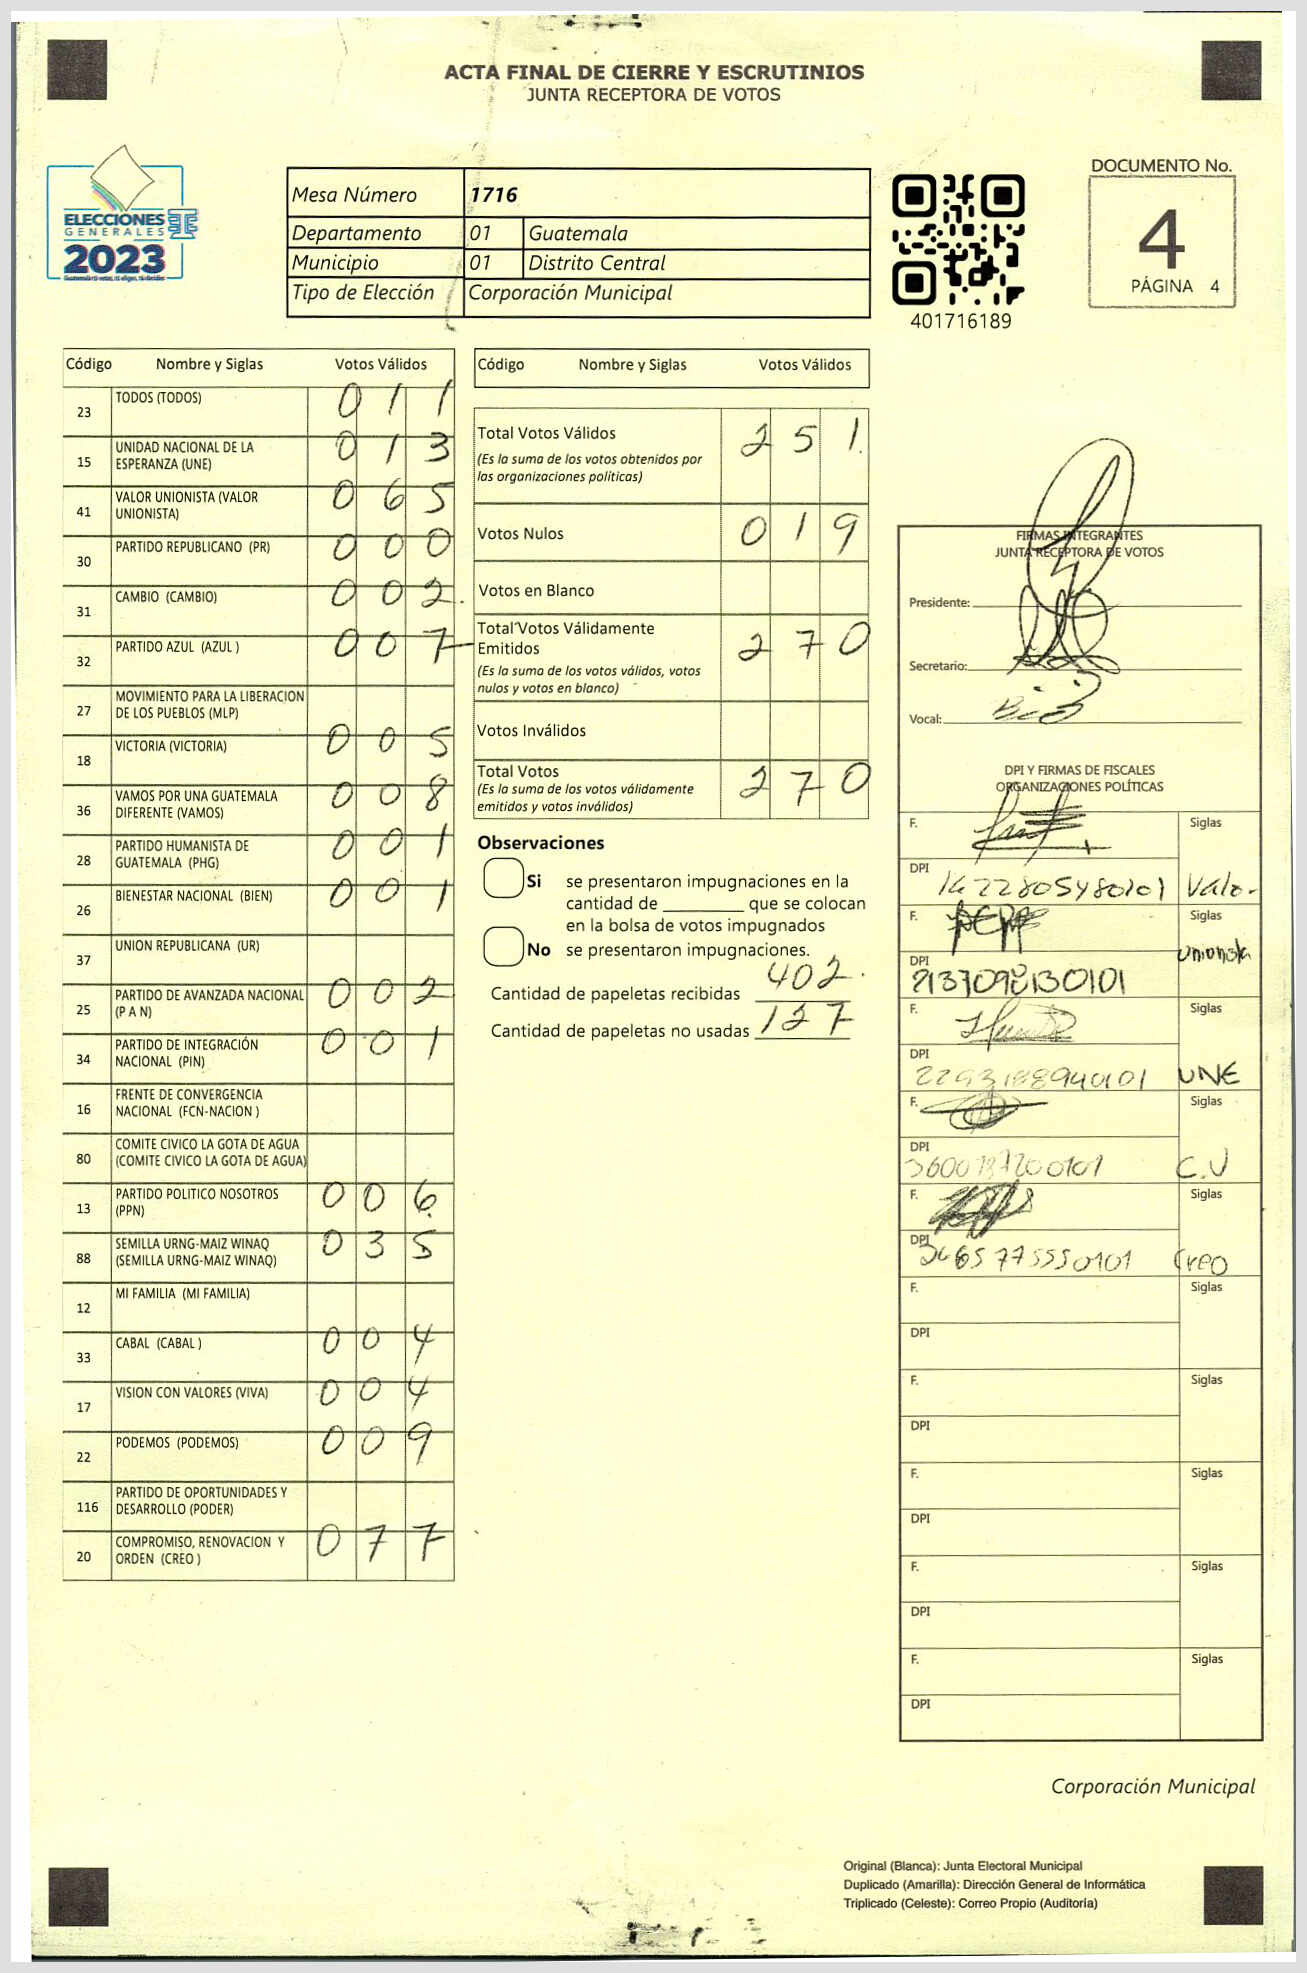 ACTA FINAL DE CIERRE Y ESCRUTINIOS
JUNTA RECEPTORA DE VOTOS
ELECCIONES
GENERALES
2023
Mesa Número 1716
Departamento 01 Guatemala
Municipio 01 Distrito Central
Tipo de Elección Corporación Municipal
401716189
DOCUMENTO No.
4
PÁGINA 4
Código Nombre y Siglas Votos Válidos
23 TODOS (TODOS) 0 1 1
15 UNIDAD NACIONAL DE LA ESPERANZA (UNE) 0 1 3
41 VALOR UNIONISTA (VALOR UNIONISTA) 0 6 5
30 PARTIDO REPUBLICANO (PR) 0 0 0
31 CAMBIO (CAMBIO) 0 0 2.
32 PARTIDO AZUL (AZUL ) 0 0 7
27 MOVIMIENTO PARA LA LIBERACION DE LOS PUEBLOS (MLP)
18 VICTORIA (VICTORIA) 0 0 5
36 VAMOS POR UNA GUATEMALA DIFERENTE (VAMOS) 0 0 8
28 PARTIDO HUMANISTA DE GUATEMALA (PHG) 0 0 1
26 BIENESTAR NACIONAL (BIEN) 0 0 1
37 UNION REPUBLICANA (UR)
25 PARTIDO DE AVANZADA NACIONAL (P A N) 0 0 2
34 PARTIDO DE INTEGRACIÓN NACIONAL (PIN) 0 0 1
16 FRENTE DE CONVERGENCIA NACIONAL (FCN-NACION )
80 COMITE CIVICO LA GOTA DE AGUA (COMITE CIVICO LA GOTA DE AGUA)
13 PARTIDO POLITICO NOSOTROS (PPN) 0 0 6
88 SEMILLA URNG-MAIZ WINAQ (SEMILLA URNG-MAIZ WINAQ) 0 3 5
12 MI FAMILIA (MI FAMILIA)
33 CABAL (CABAL ) 0 0 4
17 VISION CON VALORES (VIVA) 0 0 4
22 PODEMOS (PODEMOS) 0 0 9
116 PARTIDO DE OPORTUNIDADES Y DESARROLLO (PODER)
20 COMPROMISO, RENOVACION Y ORDEN (CREO ) 0 7 7
Código Nombre y Siglas Votos Válidos
Total Votos Válidos 2 5 1.
(Es la suma de los votos obtenidos por
las organizaciones políticas)
Votos Nulos 0 1 9
Votos en Blanco
Total Votos Válidamente
Emitidos 2 7 0
(Es la suma de los votos válidos, votos
nulos y votos en blanco)
Votos Inválidos
Total Votos 2 7 0
(Es la suma de los votos válidamente
emitidos y votos inválidos)
Observaciones
Si se presentaron impugnaciones en la
cantidad de ________ que se colocan
en la bolsa de votos impugnados
No se presentaron impugnaciones.
Cantidad de papeletas recibidas 402.
Cantidad de papeletas no usadas 127
FIRMAS INTEGRANTES
JUNTA RECEPTORA DE VOTOS
Presidente:
Secretario:
Vocal:
DPI Y FIRMAS DE FISCALES
ORGANIZACIONES POLÍTICAS
F. Siglas
DPI Valor
F. Siglas
Unionista
DPI 2137098130101
F. Siglas
DPI UNE
F. Siglas
DPI C.V
F. Siglas
DPI Creo
F. Siglas
DPI
F. Siglas
DPI
F. Siglas
DPI
F. Siglas
DPI
F. Siglas
DPI
Corporación Municipal
Original (Blanca): Junta Electoral Municipal
Duplicado (Amarilla): Dirección General de Informática
Triplicado (Celeste): Correo Propio (Auditoría)